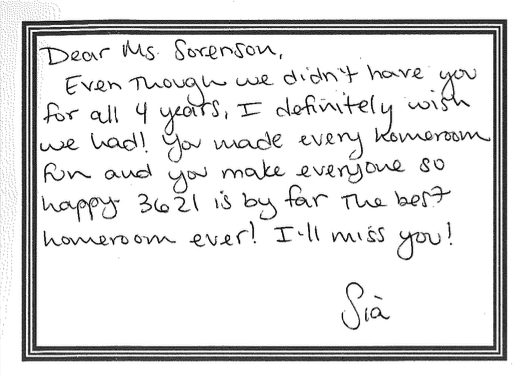 Dear Ms. Sorenson,
Even Though we didn't have you
for all 4 years, I definitely wish
we had! You made every homeroom
fun and you make everyone so
happy. 3621 is by far The best
homeroom ever! I'll miss you!
Sià